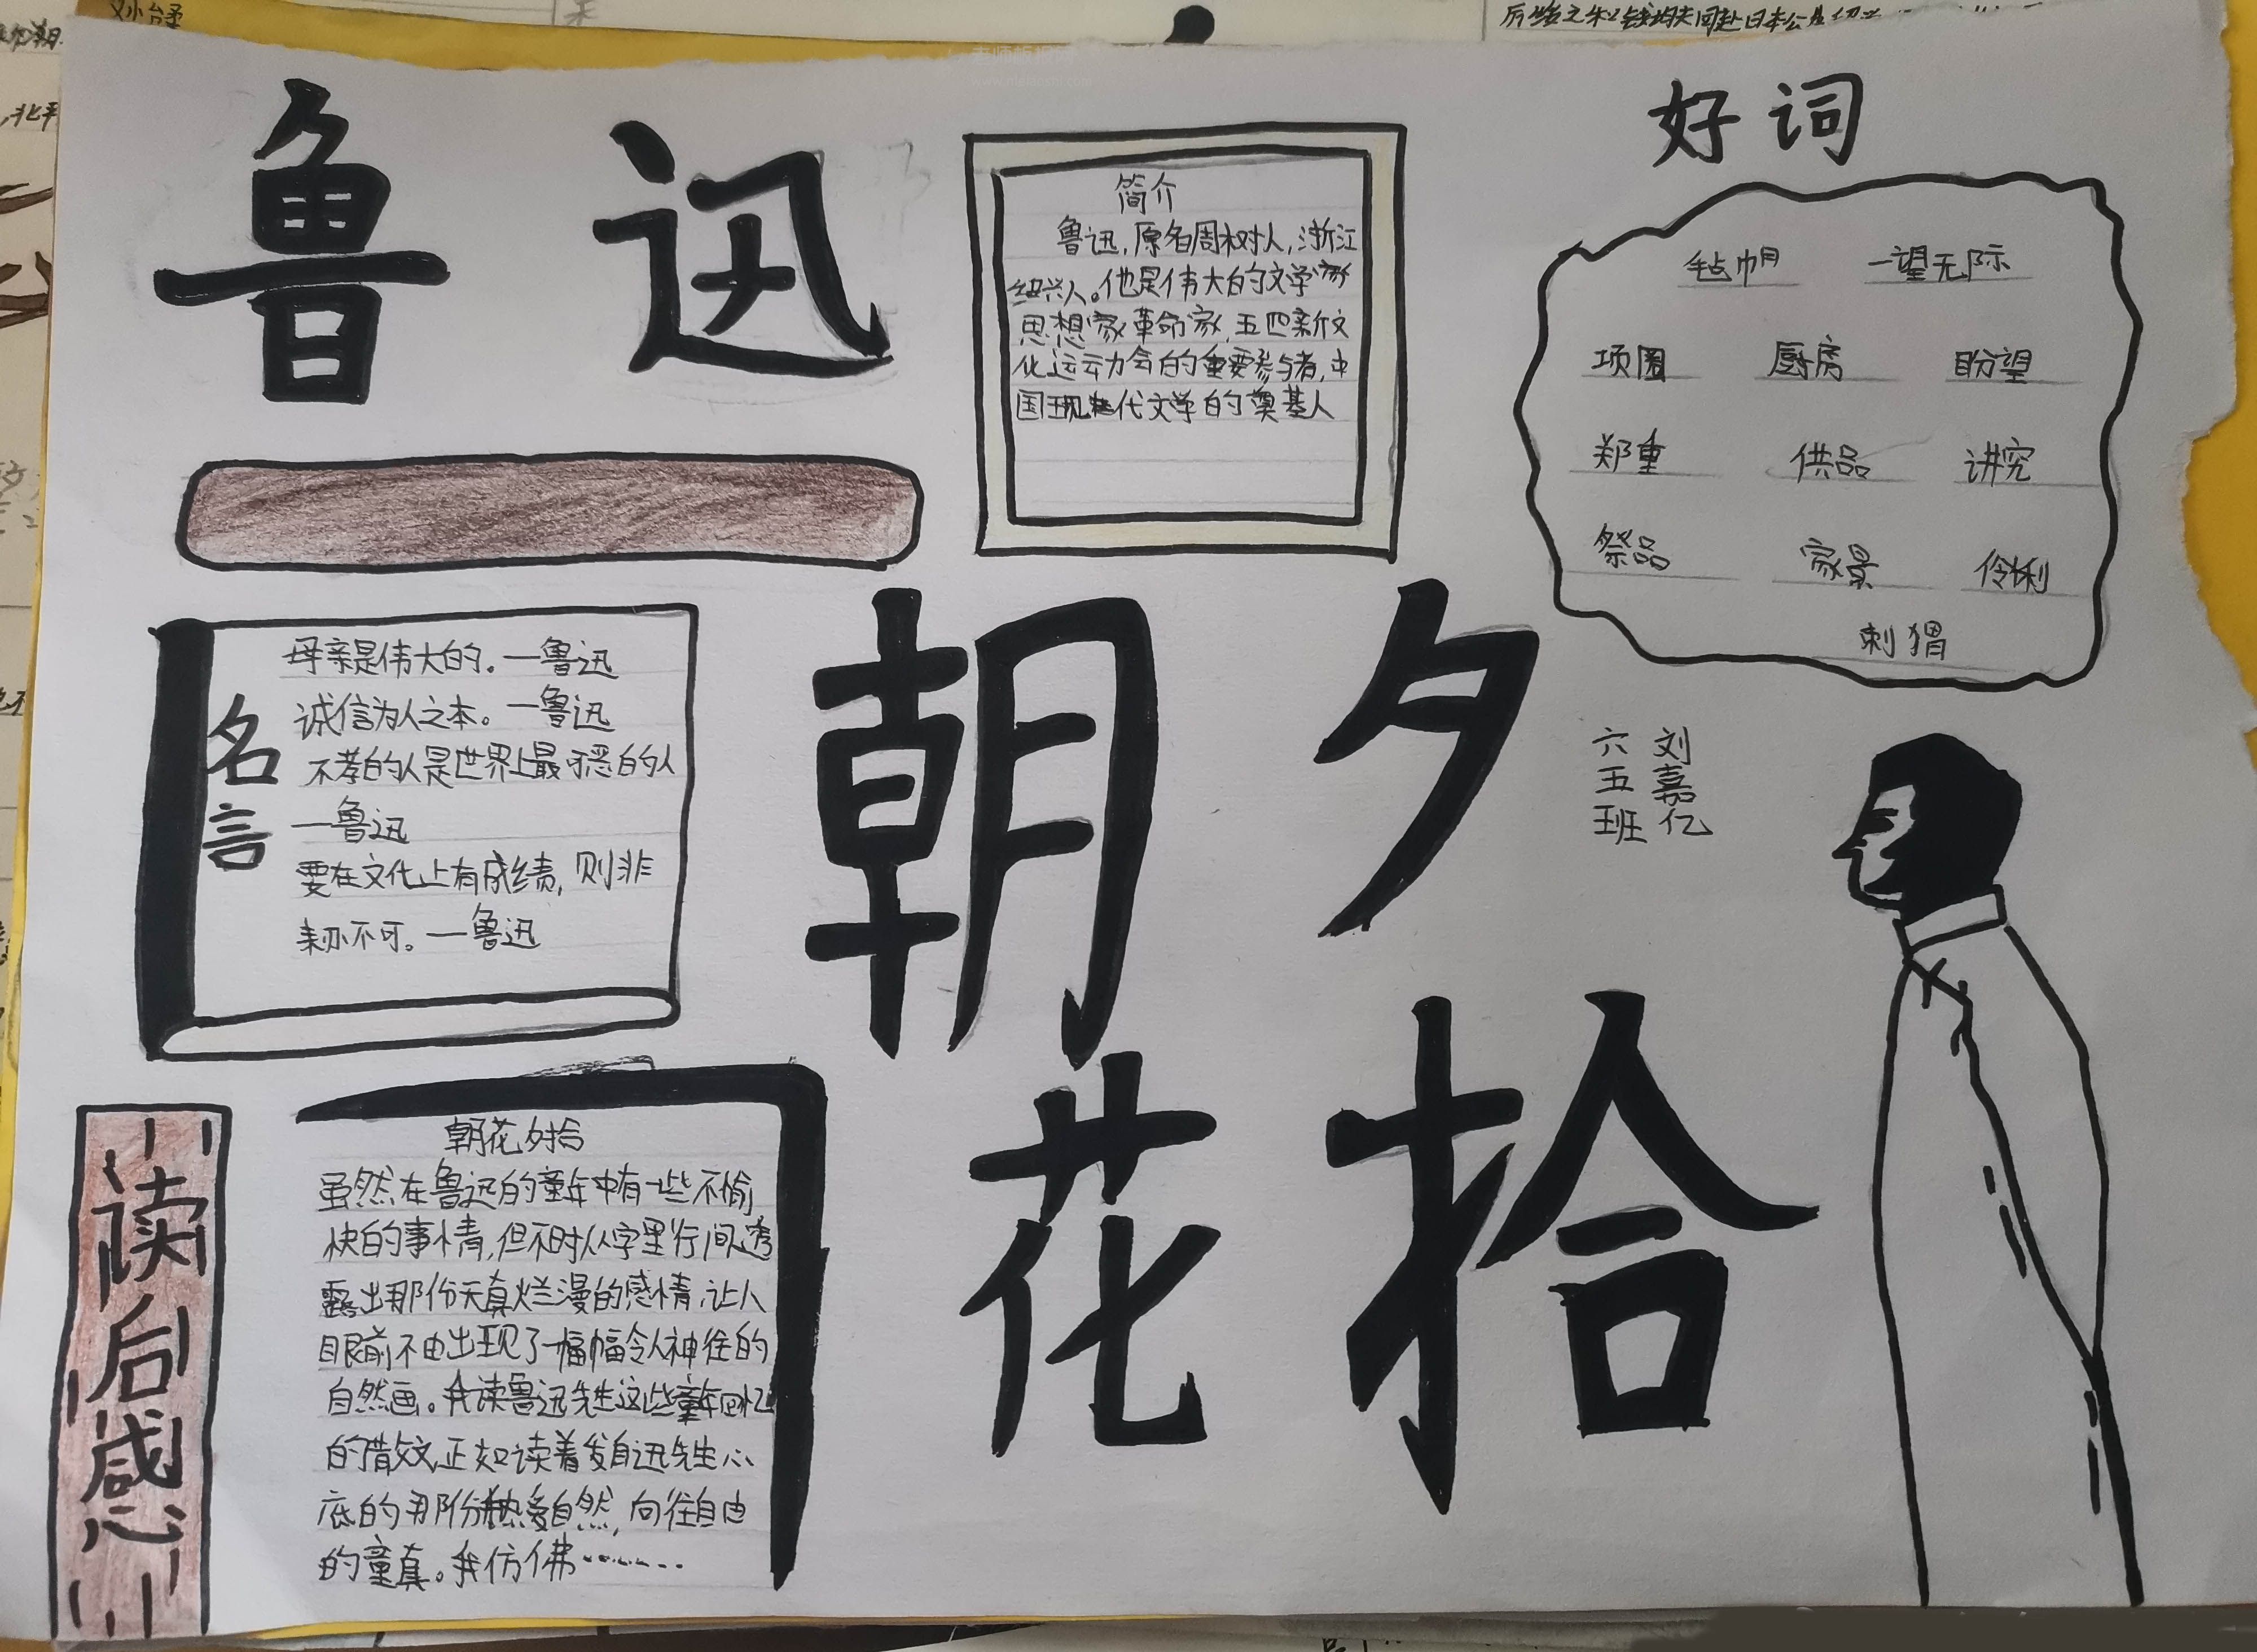 鲁迅
简介
鲁迅，原名周树人，浙江
绍兴人。他是伟大的文学家
思想家革命家，五四新文
化运动会的重要参与者，中
国现代文学的奠基人
好词
毡帽 一望无际
项圈 厨房 盼望
郑重 供品 讲究
祭品 家景 伶俐
刺猬
名言
母亲是伟大的。一鲁迅
诚信为人之本。一鲁迅
不孝的人是世界上最可恶的人
一鲁迅
要在文化上有成绩，则非
韧不可。一鲁迅
朝夕
花拾
刘嘉亿
六五班
读后感
朝花夕拾
虽然在鲁迅的童年中有一些不愉
快的事情，但不时从字里行间透
露出那份天真烂漫的感情，让人
眼前不由出现了一幅幅令人神往的
自然画。我读鲁迅先生这些童年回忆
的散文，正如读着发自迅先生心
底的那份热爱自然，向往自由
的童真。我仿佛……